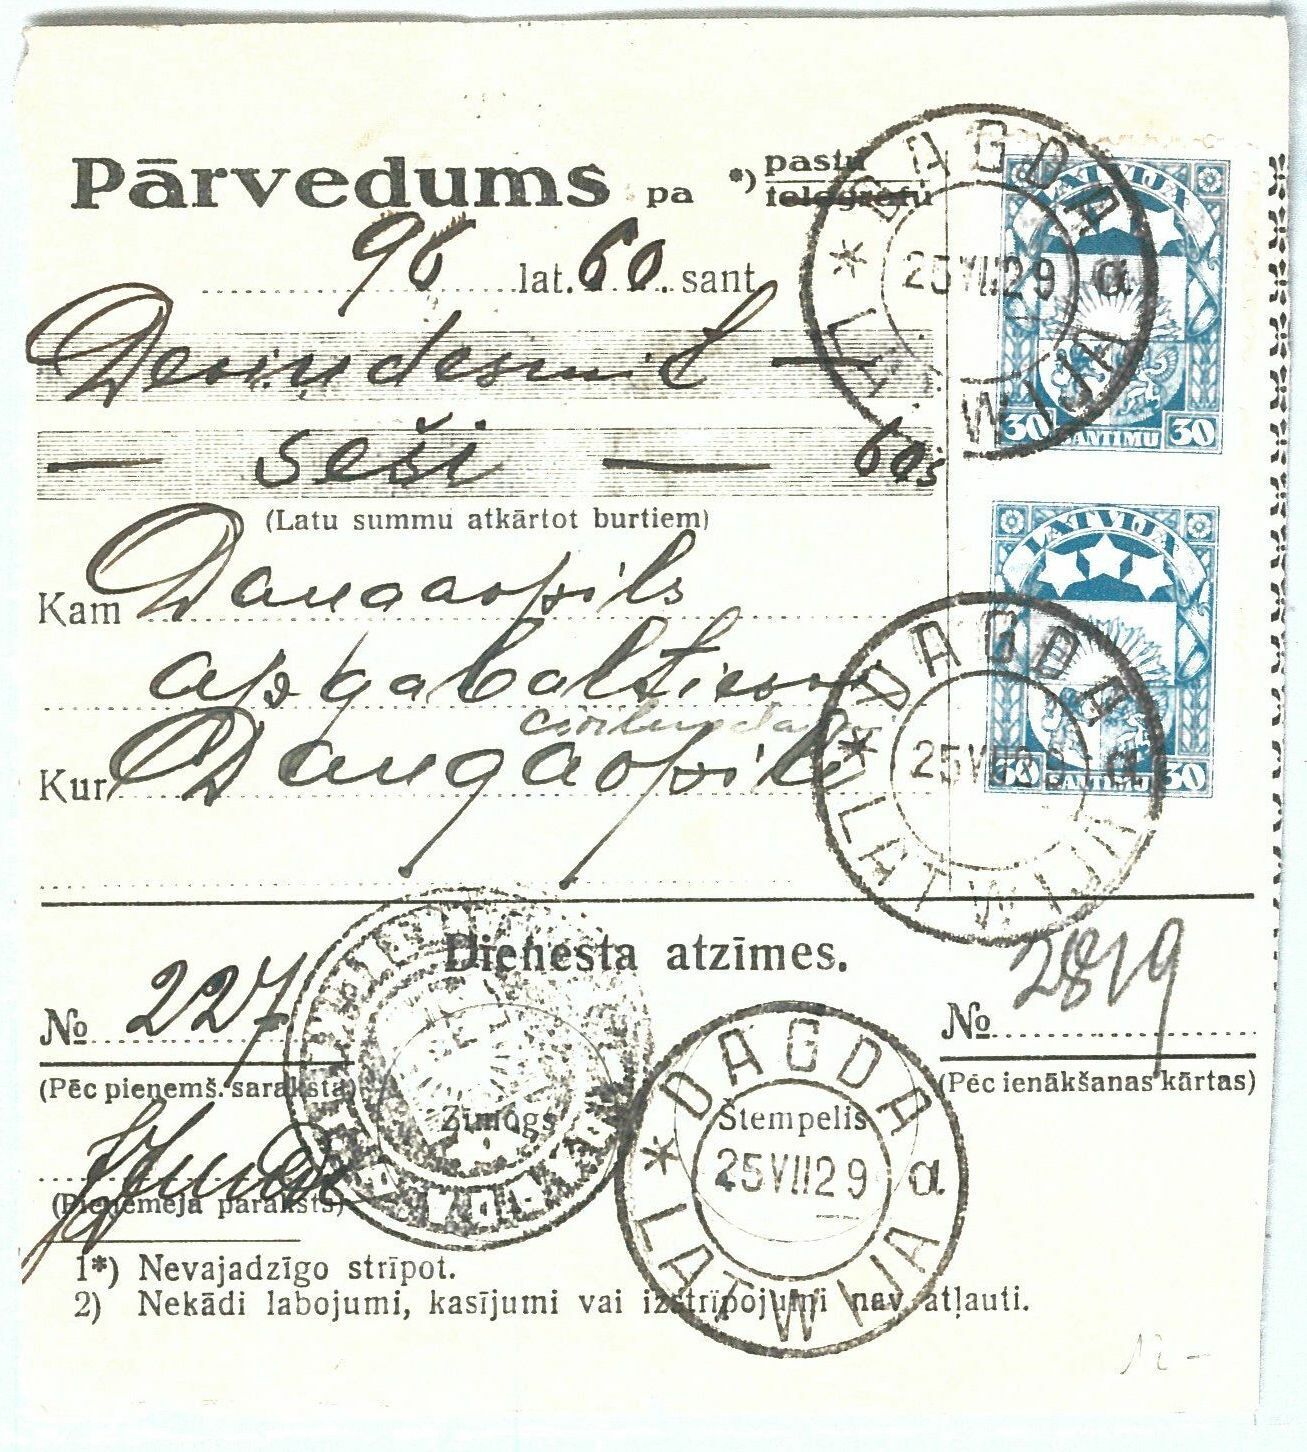 Pārvedums pa *) pastu
telegrafu
96 lat. 60 sant.
Deviņdesmit —
— seši — 60 s
(Latu summu atkārtot burtiem)
Kam Daugavpils
apgabaltiesas
Kur Daugavpilī
DAGDA
25 VII 29 α
* LATWIJA
LATVIJA
30 SANTIMU 30
DAGDA
25 VII 29 α
* LATWIJA
LATVIJA
30 SANTIMU 30
Dienesta atzīmes.
№ 227
(Pēc pieņemš. saraksta)
№ 2819
(Pēc ienākšanas kārtas)
Zīmogs
Štempelis
DAGDA
25 VII 29 α
* LATWIJA
(Pieņēmēja paraksts)
1*) Nevajadzīgo strīpot.
2) Nekādi labojumi, kasījumi vai izstrīpojumi nav atļauti.